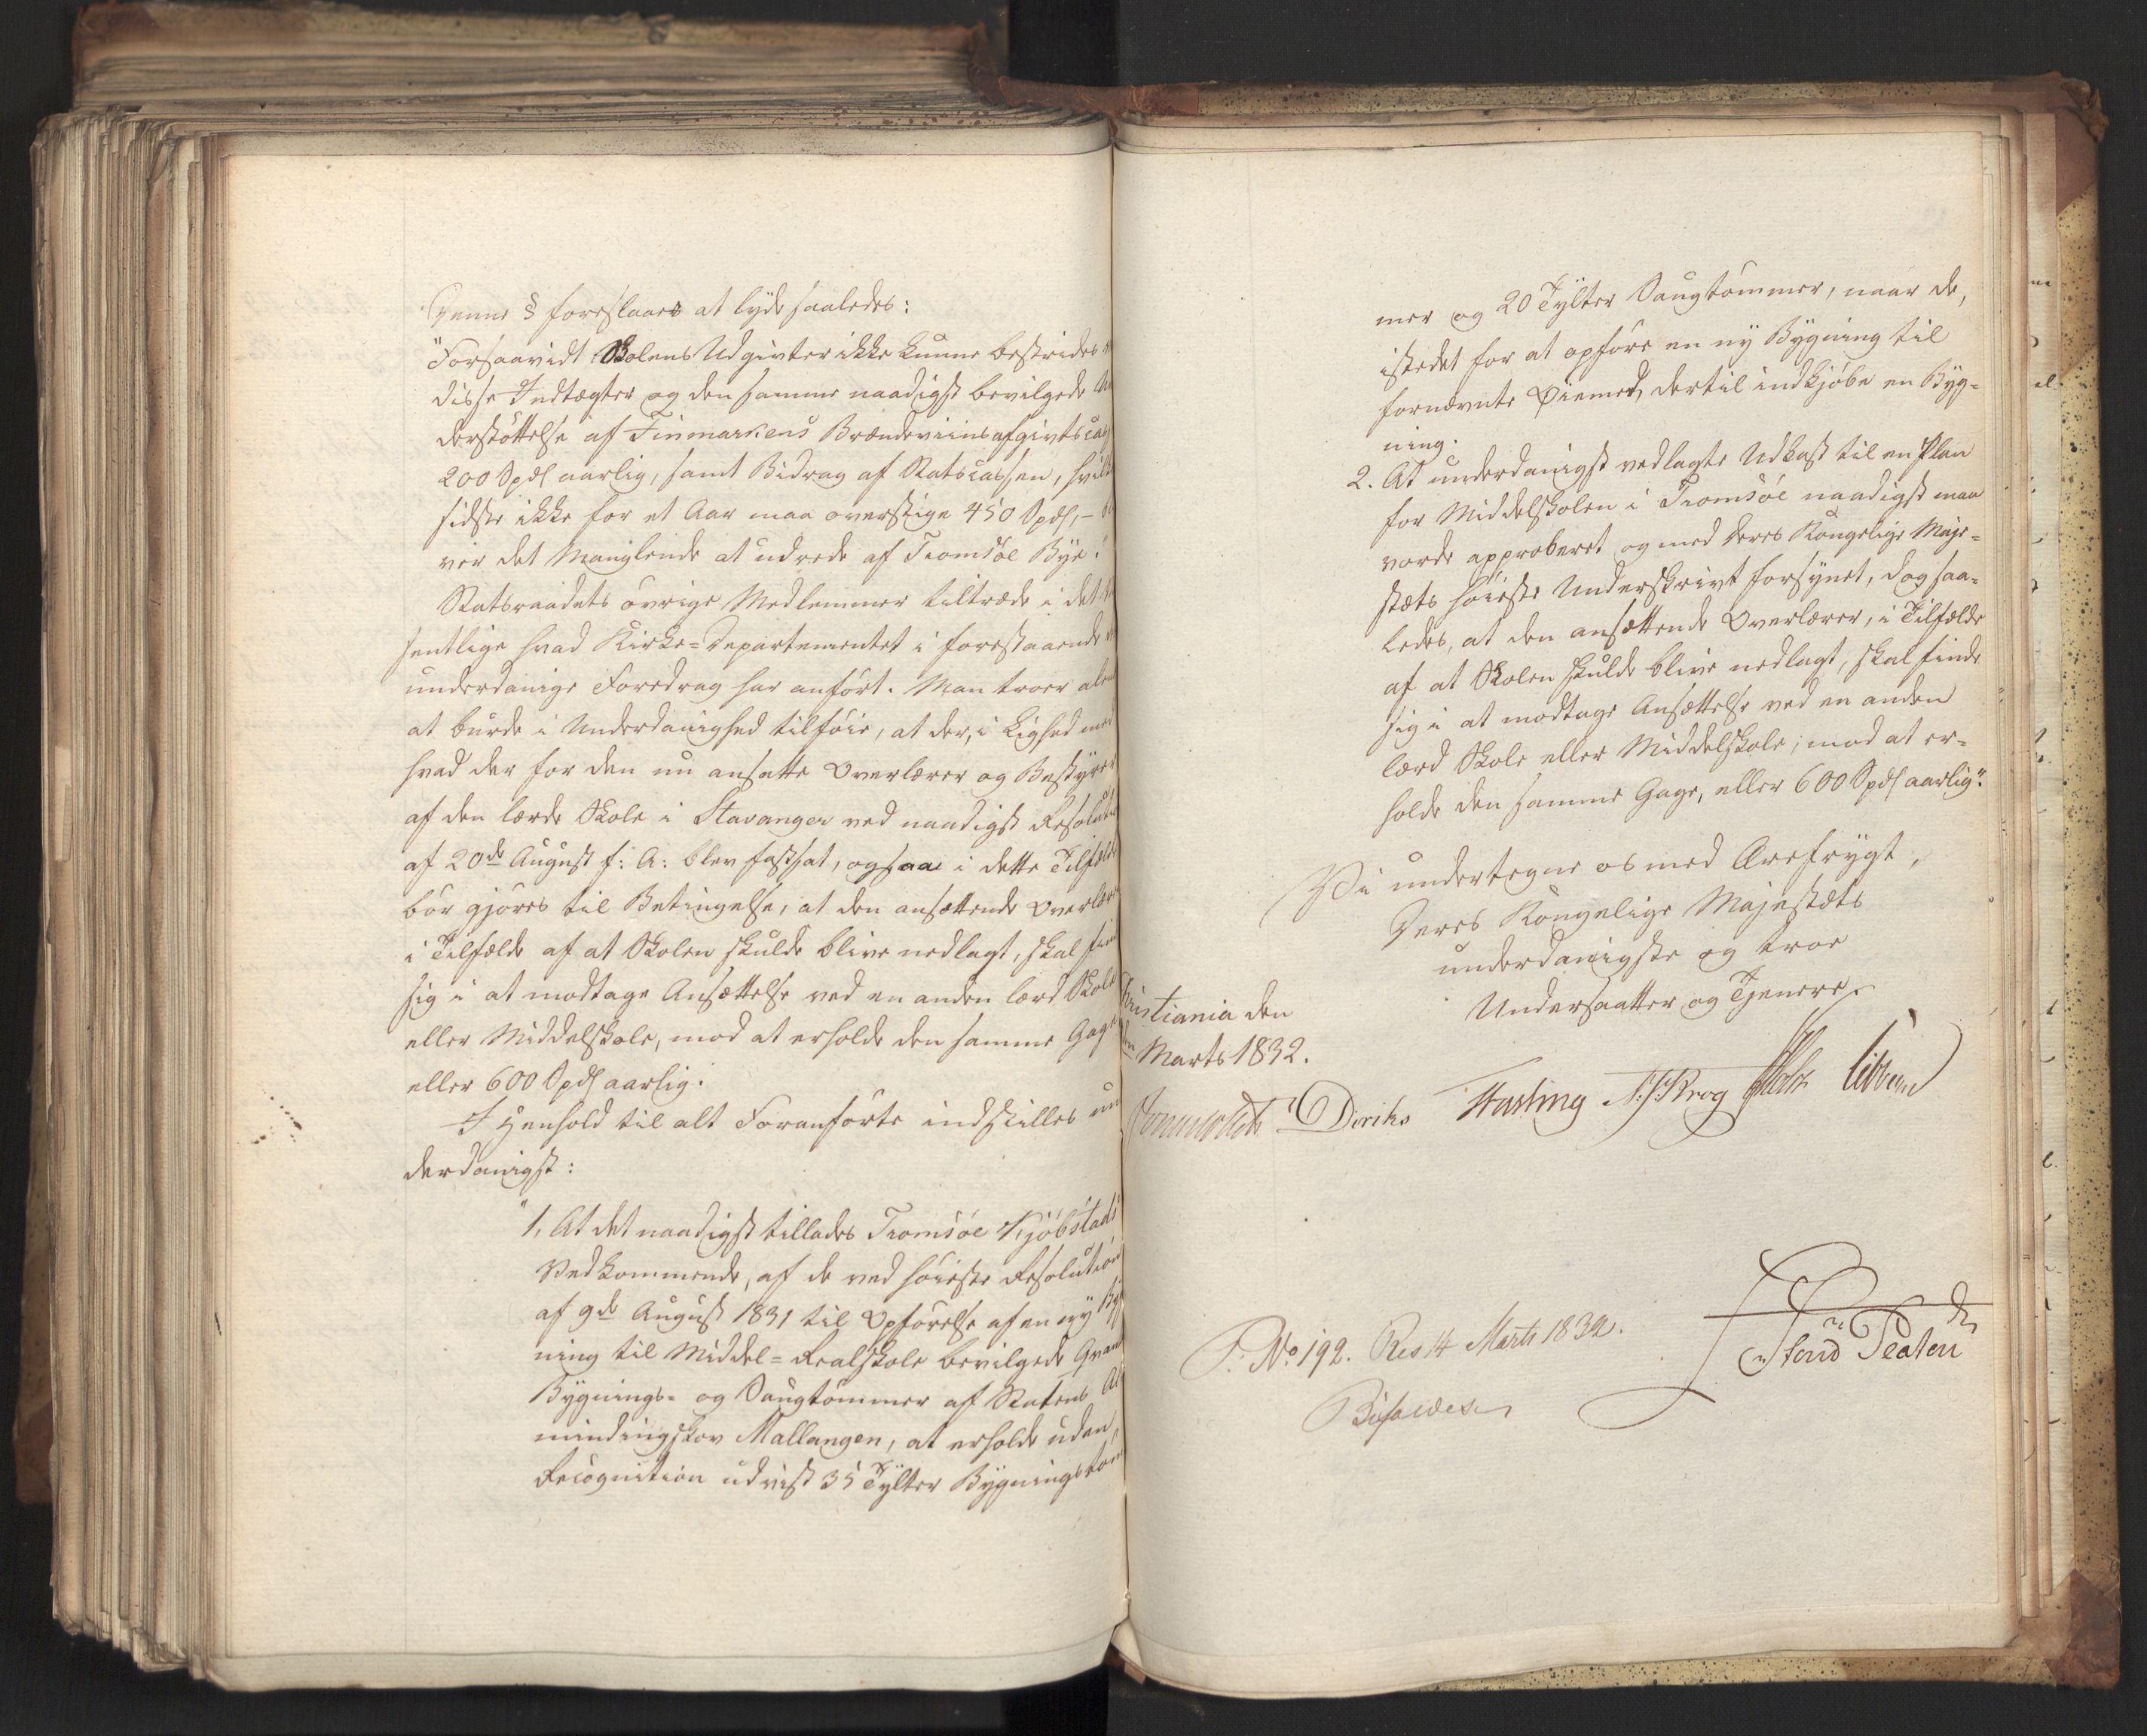 Denne § foreslaaes at lyde saaledes:
"Forsaavidt Skolens Udgivter ikke kunne bestrides
disse Indtægter og den samme naadigst bevilgede Un
derstøttelse af Finmarkens Brændeviinsafgivtscas
200 Spdl aarlig, samt Bidrag af Statscassen, hvilk
sidste ikke for et Aar maa overstige 450 Spdl, – bli
ver det Manglende at udrede af Tromsøe Bye."
Statsraadets øvrige Medlemmer tiltræde i det
sentlige hvad Kirke-Departementet i forestaaende
underdanige Foredrag har anført. Man troer alene
at burde i Underdanighed tilføie, at der, i Lighed med
hvad der for den nu ansatte Overlærer og Bestyrer
af den lærde Skole i Stavanger ved naadigst Resoluti
af 20de August f: A: blev fastsat, ogsaa i dette Tilfælde
bør gjøres til Betingelse, at den ansættende Overlær
i Tilfælde af at Skolen skulde blive nedlagt, skal fin
sig i at modtage Ansættelse ved en anden lærd Skole
eller Middelskole, mod at erholde den samme Gage
eller 600 Spdl aarlig.
I Henhold til alt Foranførte indstilles un
derdanigst:
"1, At det naadigst tillades Tromsøe Kjøbstads
Vedkommende, af de ved høieste Resolution
af 9de August 1831 til Opførelse af en ny Byg
ning til Middel-Realskole bevilgede Qvan
Bygnings- og Saugtømmer af Statens Al
mindingskov Mallangen, at erholde uden
Recognition udvist 35 Tylter Bygningstøm
mer og 20 Tylter Saugtømmer, naar de,
istedet for at opføre en ny Bygning til
fornævnte Øiemed, dertil indkjøbe en Byg-
ning.
2. At underdanigst vedlagte Udkast til en Plan
for Middelskolen i Tromsøe naadigst maa
vorde approberet og med Deres Kongelige Maje-
stæts høieste Underskrivt forsynet, dog saa-
ledes, at den ansættende Overlærer, i Tilfælde
af at Skolen skulde blive nedlagt, skal finde
sig i at modtage Ansættelse ved en anden
lærd Skole eller Middelskole, mod at er-
holde den samme Gage, eller 600 Spdl aarlig".
Vi undertegne os med Ærefrygt,
Deres Kongelige Majestæts
underdanigste og troe
Undersaatter og Tjenere.
Christiania den
Marts 1832.
Diriks Fasting Krog Holst
F: No 192. Res 14 Marts 1832.